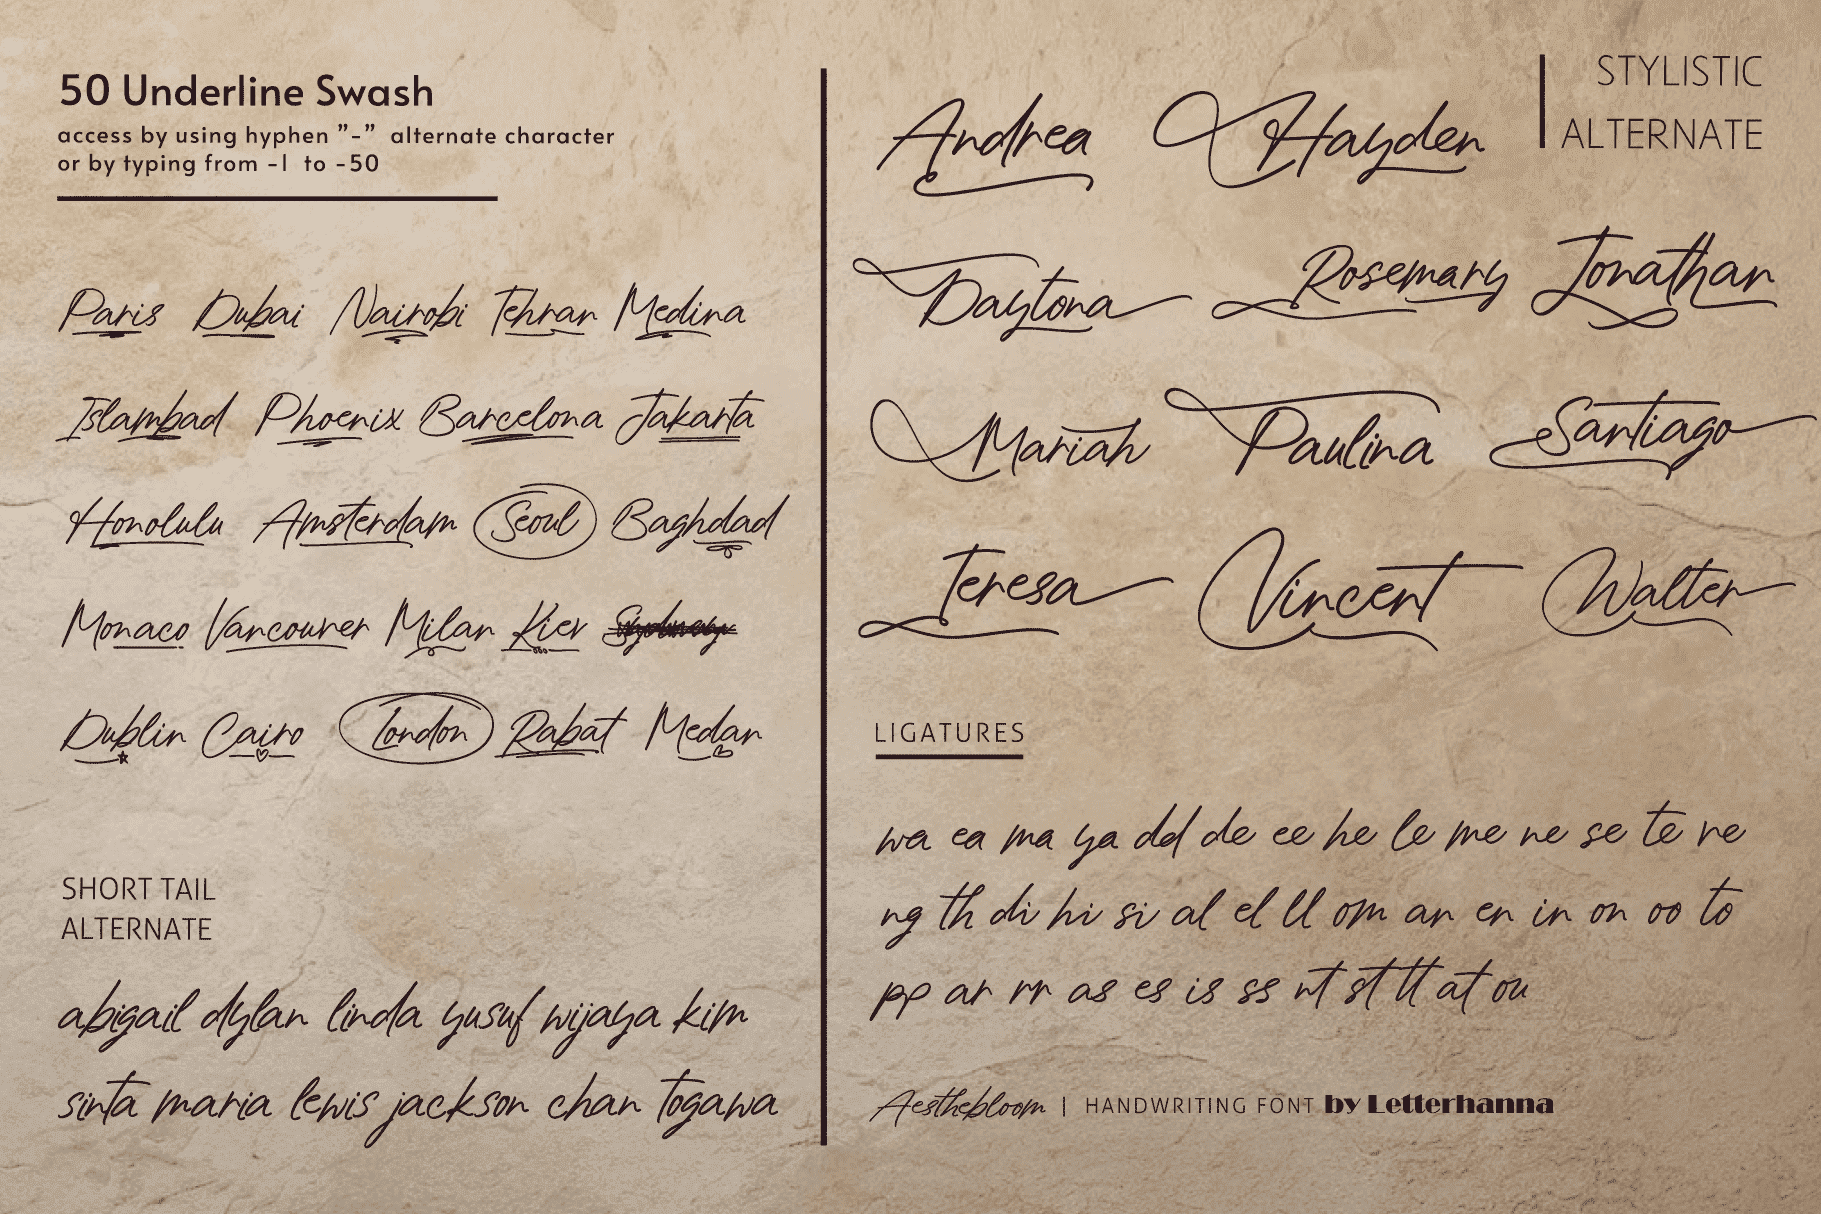 50 Underline Swash
access by using hyphen ”-” alternate character
or by typing from -1 to -50
Paris Dubai Nairobi Tehran Medina
Islambad Phoenix Barcelona Jakarta
Honolulu Amsterdam Seoul Baghdad
Monaco Vancouver Milan Kiev Sydney
Dublin Cairo London Rabat Medan
SHORT TAIL
ALTERNATE
abigail dylan linda yusuf wijaya kim
sinta maria lewis jackson chan togawa
STYLISTIC
ALTERNATE
Andrea Hayden
Daytona Rosemary Jonathan
Mariah Paulina Santiago
Teresa Vincent Walter
LIGATURES
wa ea ma ya dd de ee he le me ne se te re
ng th di hi si al el ll om an en in on oo to
pp ar rr as es is ss nt st tt at ou
Aesthebloom | HANDWRITING FONT by Letterhanna